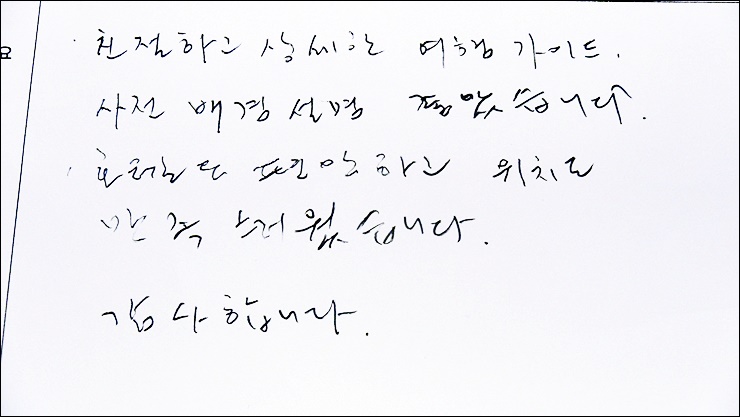 요
· 친절하고 상세한 여행 가이드.
사전 배경 설명 좋았습니다.
· 호텔도 편안하고 위치도
만족스러웠습니다.
감사합니다.